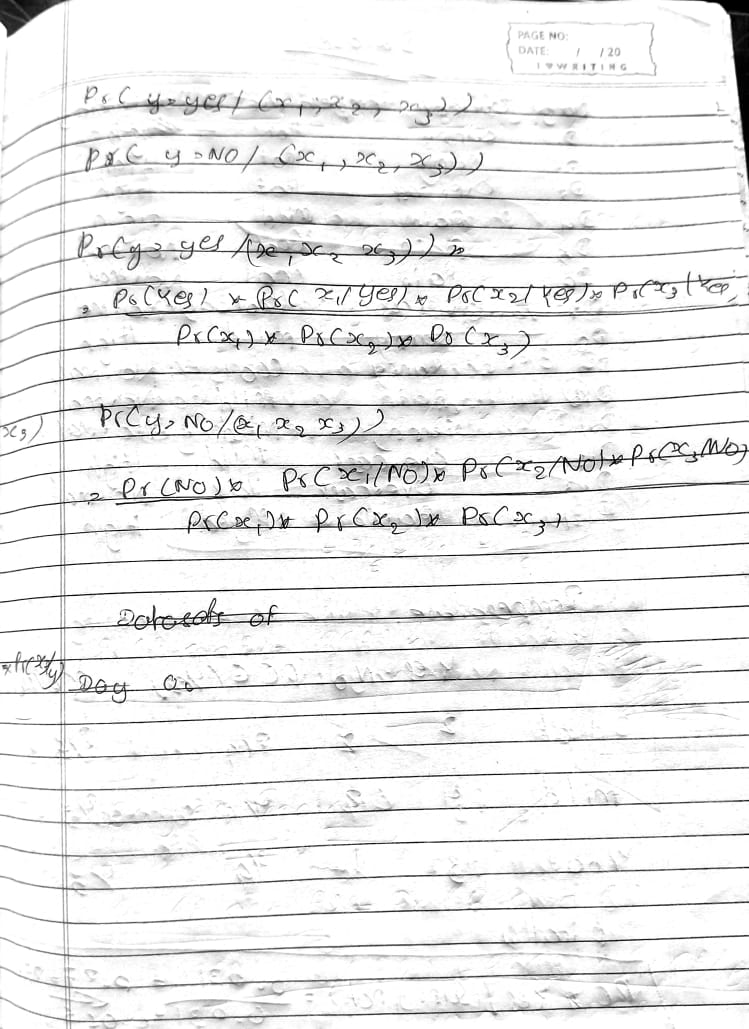 PAGE NO:
DATE: / /20
I ♥ WRITING
Pr(y=yes/(x₁, x₂, x₃))
Pr(y=NO/(x₁, x₂, x₃))
Pr(y=yes/(x₁ x₂ x₃)) =
= Pr(Yes) * Pr(x₁/Yes) * Pr(x₂/Yes) * Pr(x₃/Yes
Pr(x₁) * Pr(x₂) * Pr(x₃)
x₃)
Pr(y=NO/(x₁ x₂ x₃))
= Pr(NO) * Pr(x₁/NO) * Pr(x₂/NO) * Pr(x₃/NO)
Pr(x₁) * Pr(x₂) * Pr(x₃)
of
Day